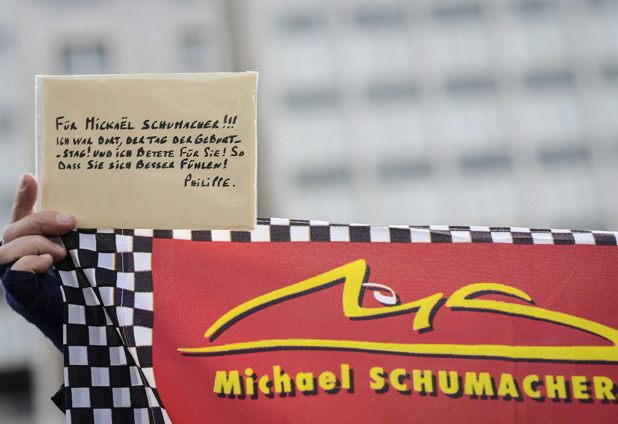 FÜR MICKAËL SCHUMACHER!!!
ICH WAR DORT, DER TAG DER GEBURT-
-STAG! UND ICH BETETE FÜR SIE! SO
DASS SIE SICH BESSER FÜHLEN!
PHILIPPE.
Michael SCHUMACHER